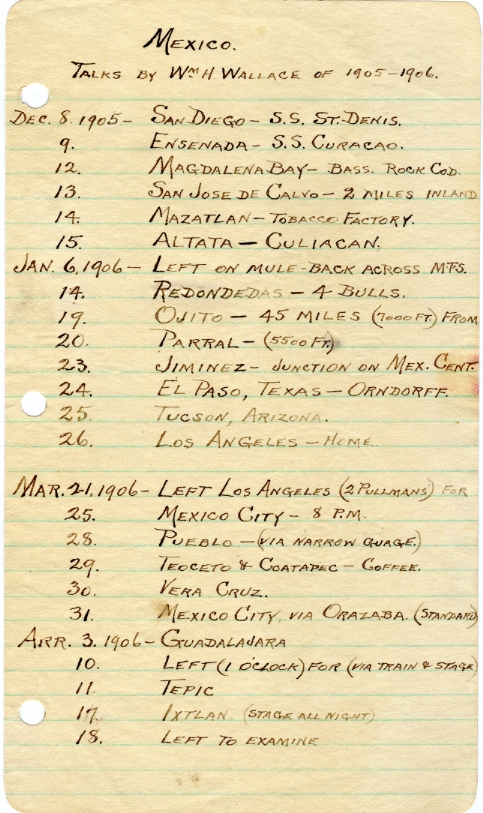 Mexico.
Talks by Wm H. Wallace of 1905-1906.
Dec. 8. 1905- San Diego - S.S. St. Denis.
9. Ensenada - S.S. Curacao.
12. Magdalena Bay - Bass. Rock Cod.
13. San Jose de Calvo - 2 miles inland
14. Mazatlan - Tobacco Factory.
15. Altata - Culiacan.
Jan. 6, 1906 - Left on mule-back across mts.
14. Redondedas - 4 Bulls.
19. Ojito - 45 miles (7000 ft) from
20. Parral - (5500 ft)
23. Jiminez - Junction on Mex. Cent.
24. El Paso, Texas - Orndorff.
25. Tucson, Arizona.
26. Los Angeles - Home.
Mar. 21, 1906 - Left Los Angeles (2 Pullmans) for
25. Mexico City - 8 P.M.
28. Pueblo - (via narrow guage.)
29. Teoceto & Coatapec - Coffee.
30. Vera Cruz.
31. Mexico City, via Orazaba. (Standard)
Apr. 3. 1906 - Guadalajara
10. Left (1 o'clock) for (via train & stage)
11. Tepic
17. Ixtlan (stage all night)
18. Left to examine